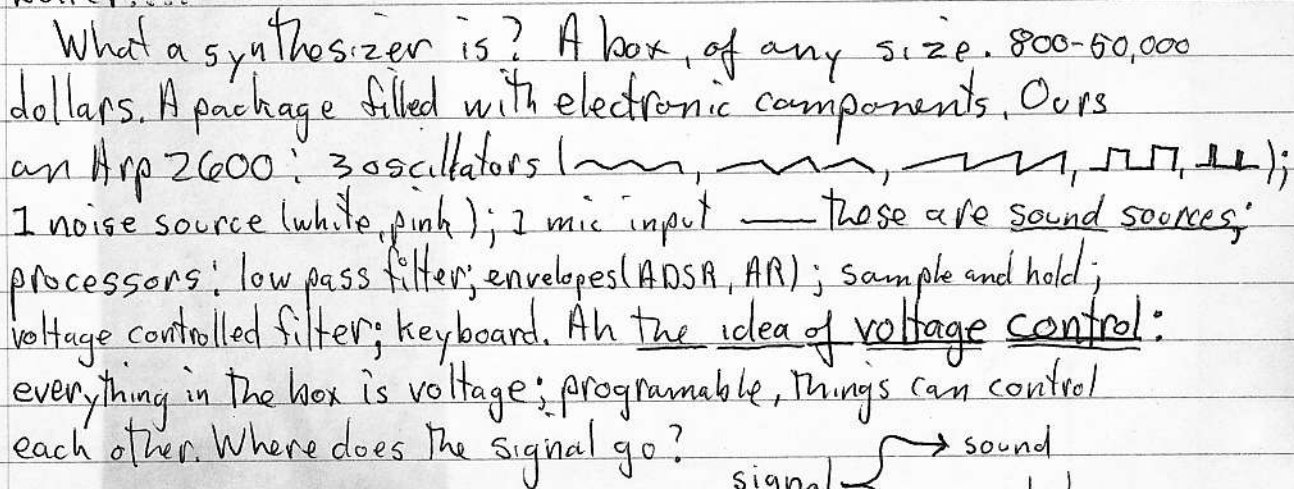 What a synthesizer is? A box, of any size. 800-50,000
dollars. A package filled with electronic components. Ours
an Arp 2600: 3 oscillators ( , , , , );
1 noise source (white, pink); 1 mic input — those are sound sources;
processors: low pass filter; envelopes (ADSR, AR); sample and hold;
voltage controlled filter; keyboard. Ah the idea of voltage control:
everything in the box is voltage; programable, things can control
each other. Where does the signal go?
sound
signal